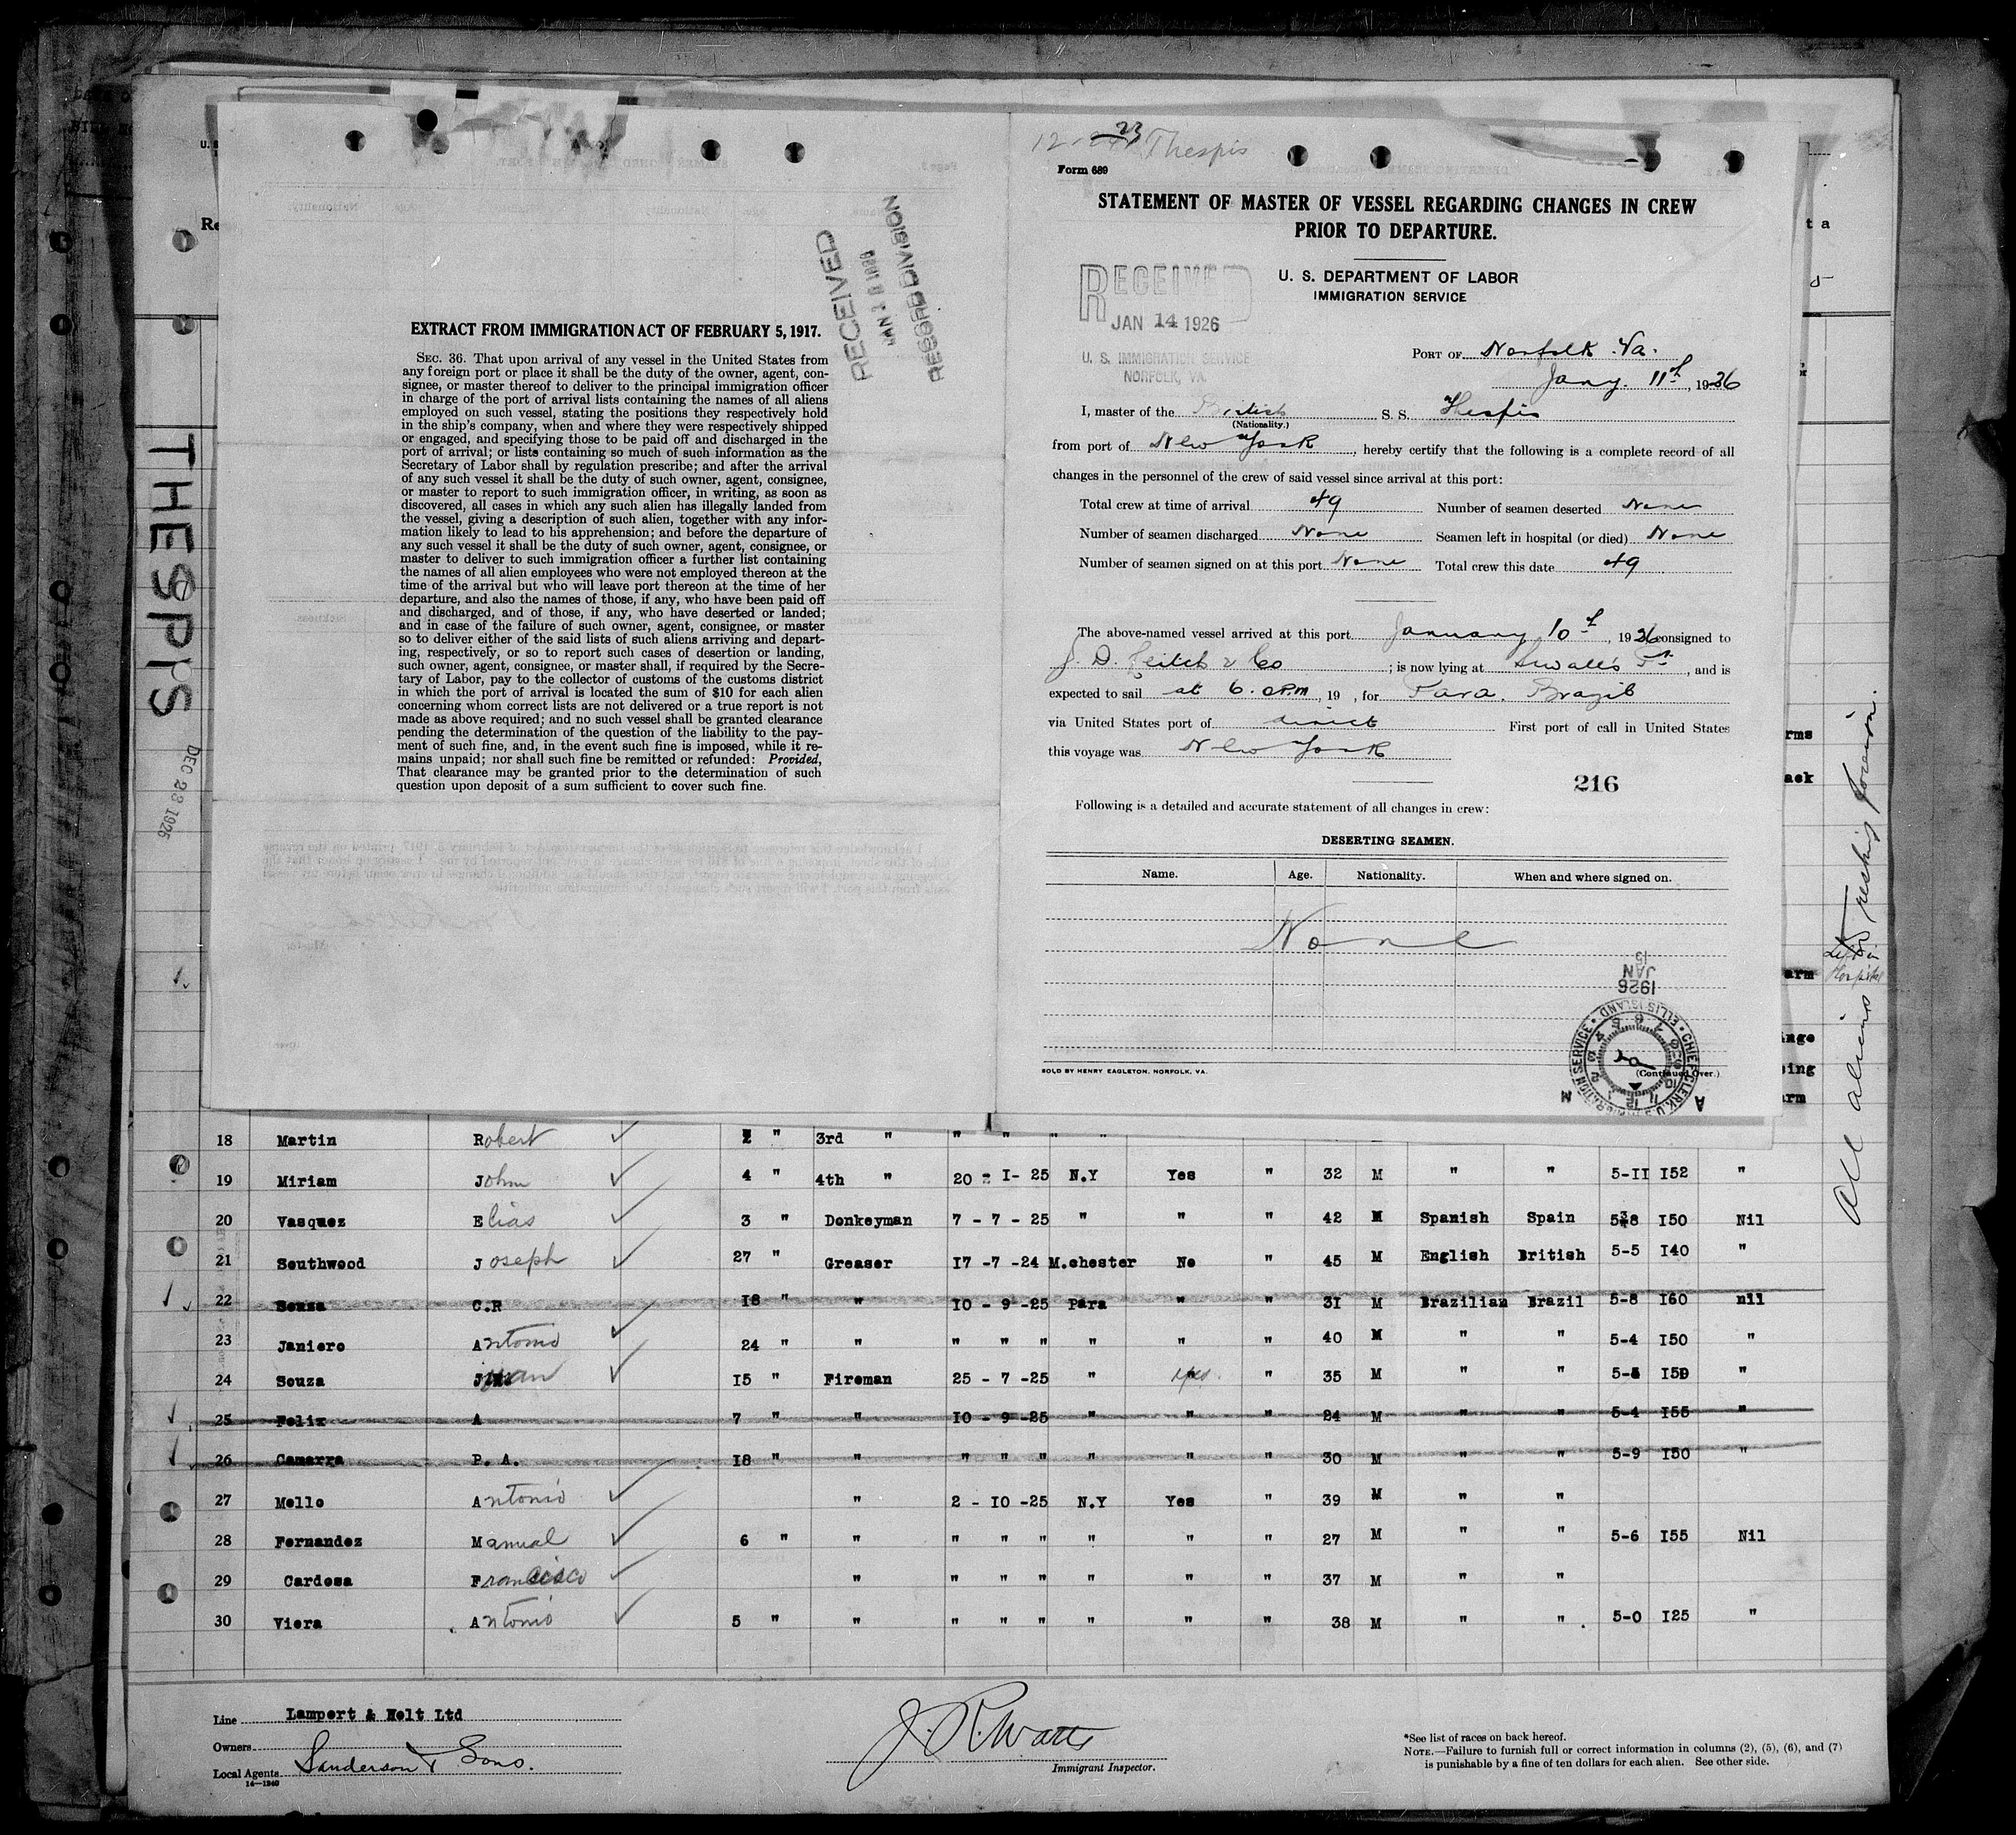 12-23 Thespis
Form 689
STATEMENT OF MASTER OF VESSEL REGARDING CHANGES IN CREW
PRIOR TO DEPARTURE.
U. S. DEPARTMENT OF LABOR
IMMIGRATION SERVICE
RECEIVED
JAN 14 1926
U. S. IMMIGRATION SERVICE
NORFOLK, VA.
PORT OF Norfolk Va.
Jany. 11th, 1926
I, master of the British S. S. Thespis
(Nationality.)
from port of New York, hereby certify that the following is a complete record of all
changes in the personnel of the crew of said vessel since arrival at this port:
Total crew at time of arrival 49 Number of seamen deserted None
Number of seamen discharged None Seamen left in hospital (or died) None
Number of seamen signed on at this port None Total crew this date 49
The above-named vessel arrived at this port January 10th, 1926 consigned to
J. D. Leitch & Co ; is now lying at Sewalls Pt, and is
expected to sail at 6.0 PM, 19 , for Para. Brazil
via United States port of direct First port of call in United States
this voyage was New York
216
Following is a detailed and accurate statement of all changes in crew:
DESERTING SEAMEN.
Name. Age. Nationality. When and where signed on.
None
1926
JAN
15
CHIEF CLERK, U. S. IMMIGRATION SERVICE • ELLIS ISLAND •
SOLD BY HENRY EAGLETON, NORFOLK, VA.
(Continued Over.)
RECEIVED
RECORD DIVISION
EXTRACT FROM IMMIGRATION ACT OF FEBRUARY 5, 1917.
SEC. 36. That upon arrival of any vessel in the United States from
any foreign port or place it shall be the duty of the owner, agent, con-
signee, or master thereof to deliver to the principal immigration officer
in charge of the port of arrival lists containing the names of all aliens
employed on such vessel, stating the positions they respectively hold
in the ship's company, when and where they were respectively shipped
or engaged, and specifying those to be paid off and discharged in the
port of arrival; or lists containing so much of such information as the
Secretary of Labor shall by regulation prescribe; and after the arrival
of any such vessel it shall be the duty of such owner, agent, consignee,
or master to report to such immigration officer, in writing, as soon as
discovered, all cases in which any such alien has illegally landed from
the vessel, giving a description of such alien, together with any infor-
mation likely to lead to his apprehension; and before the departure of
any such vessel it shall be the duty of such owner, agent, consignee, or
master to deliver to such immigration officer a further list containing
the names of all alien employees who were not employed thereon at the
time of the arrival but who will leave port thereon at the time of her
departure, and also the names of those, if any, who have been paid off
and discharged, and of those, if any, who have deserted or landed;
and in case of the failure of such owner, agent, consignee, or master
so to deliver either of the said lists of such aliens arriving and depart-
ing, respectively, or so to report such cases of desertion or landing,
such owner, agent, consignee, or master shall, if required by the Secre-
tary of Labor, pay to the collector of customs of the customs district
in which the port of arrival is located the sum of $10 for each alien
concerning whom correct lists are not delivered or a true report is not
made as above required; and no such vessel shall be granted clearance
pending the determination of the question of the liability to the pay-
ment of such fine, and, in the event such fine is imposed, while it re-
mains unpaid; nor shall such fine be remitted or refunded: Provided,
That clearance may be granted prior to the determination of such
question upon deposit of a sum sufficient to cover such fine.
THESPIS
DEC 23 1925
Left in
Hospital
18 Martin Robert 2 " 3rd " " " " "
19 Miriam John 4 " 4th " 20 - I- 25 N.Y Yes " 32 M " " 5-II I52 "
20 Vasquez Elias 3 " Donkeyman 7 - 7 - 25 " " " 42 M Spanish Spain 5-8 I50 Nil
21 Southwood Joseph 27 " Greaser I7 -7 -24 M.chester No " 45 M English British 5-5 I40 "
22 Souza C.R I8 " " I0 - 9 -25 Para " " 3I M Brazilian Brazil 5-8 I60 nil
23 Janiero Antonio 24 " " " " " " " " 40 M " " 5-4 I50 "
24 Souza Juan I5 " Fireman 25 - 7 -25 " yes. " 35 M " " 5-5 I50 "
25 Felix A 7 " " I0 - 9 -25 " " " 24 M " " 5-4 I55 "
26 Camarra P. A. I8 " " " " " " " " 30 M " " 5-9 I50 "
27 Mello Antonio " 2 - I0 -25 N.Y Yes " 39 M " "
28 Fernandez Manual 6 " " " " " " " " 27 M " " 5-6 I55 Nil
29 Cardosa Francisco " " " " " " " 37 M " "
30 Viera Antonio 5 " " " " " " " " 38 M " " 5-0 I25 "
Line Lampert & Holt Ltd
Owners
Local Agents Sanderson & Sons.
14—1240
J. R. Watts
Immigrant Inspector.
*See list of races on back hereof.
NOTE.—Failure to furnish full or correct information in columns (2), (5), (6), and (7)
is punishable by a fine of ten dollars for each alien. See other side.